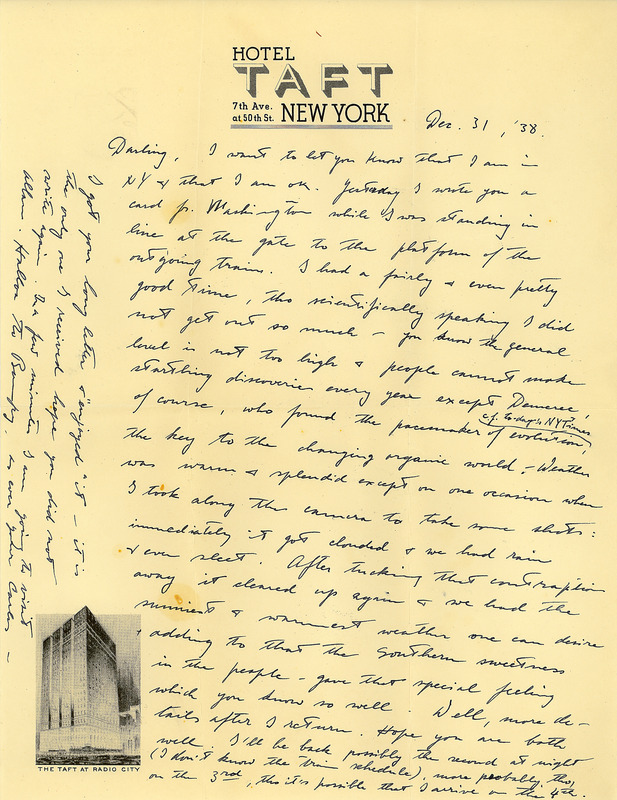 HOTEL
TAFT
7th Ave.
at 50th St. NEW YORK
Dec. 31, '38.
Darling, I want to let you know that I am in
NY & that I am ok. Yesterday I wrote you a
card fr. Washington while I was standing in
line at the gate to the platform of the
outgoing train. I had a fairly & even pretty
good time, tho scientifically speaking I did
not get out so much – you know the general
level is not too high & people cannot make
startling discoveries every year except Demerec,
of course, who found the pacemaker of evolution,
cf. to-day's NYTimes
the key to the changing organic world – Weather
was warm & splendid except on one occasion when
I took along the camera to take some shots:
immediately it got clouded & we had rain
& even sleet. After tucking that contraption
away it cleared up again & we had the
sunniest & warmest weather one can desire
+ adding to that the Southern sweetness
in the people – gave that special feeling
which you know so well. Well, more de-
tails after I return. Hope you are both
well. I'll be back possibly the second at night
(I don't know the train schedule), more probably, tho,
on the 3rd, tho it's possible that I arrive on the 4th.
I got your long letter & "enjoyed" it – it is
the only one I received hope you did not
write again. In a few minutes I am going to visit
Allan. Halloo to , as ever your Carlos –
THE TAFT AT RADIO CITY